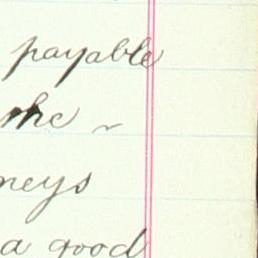 payable
the ~
neys
a good